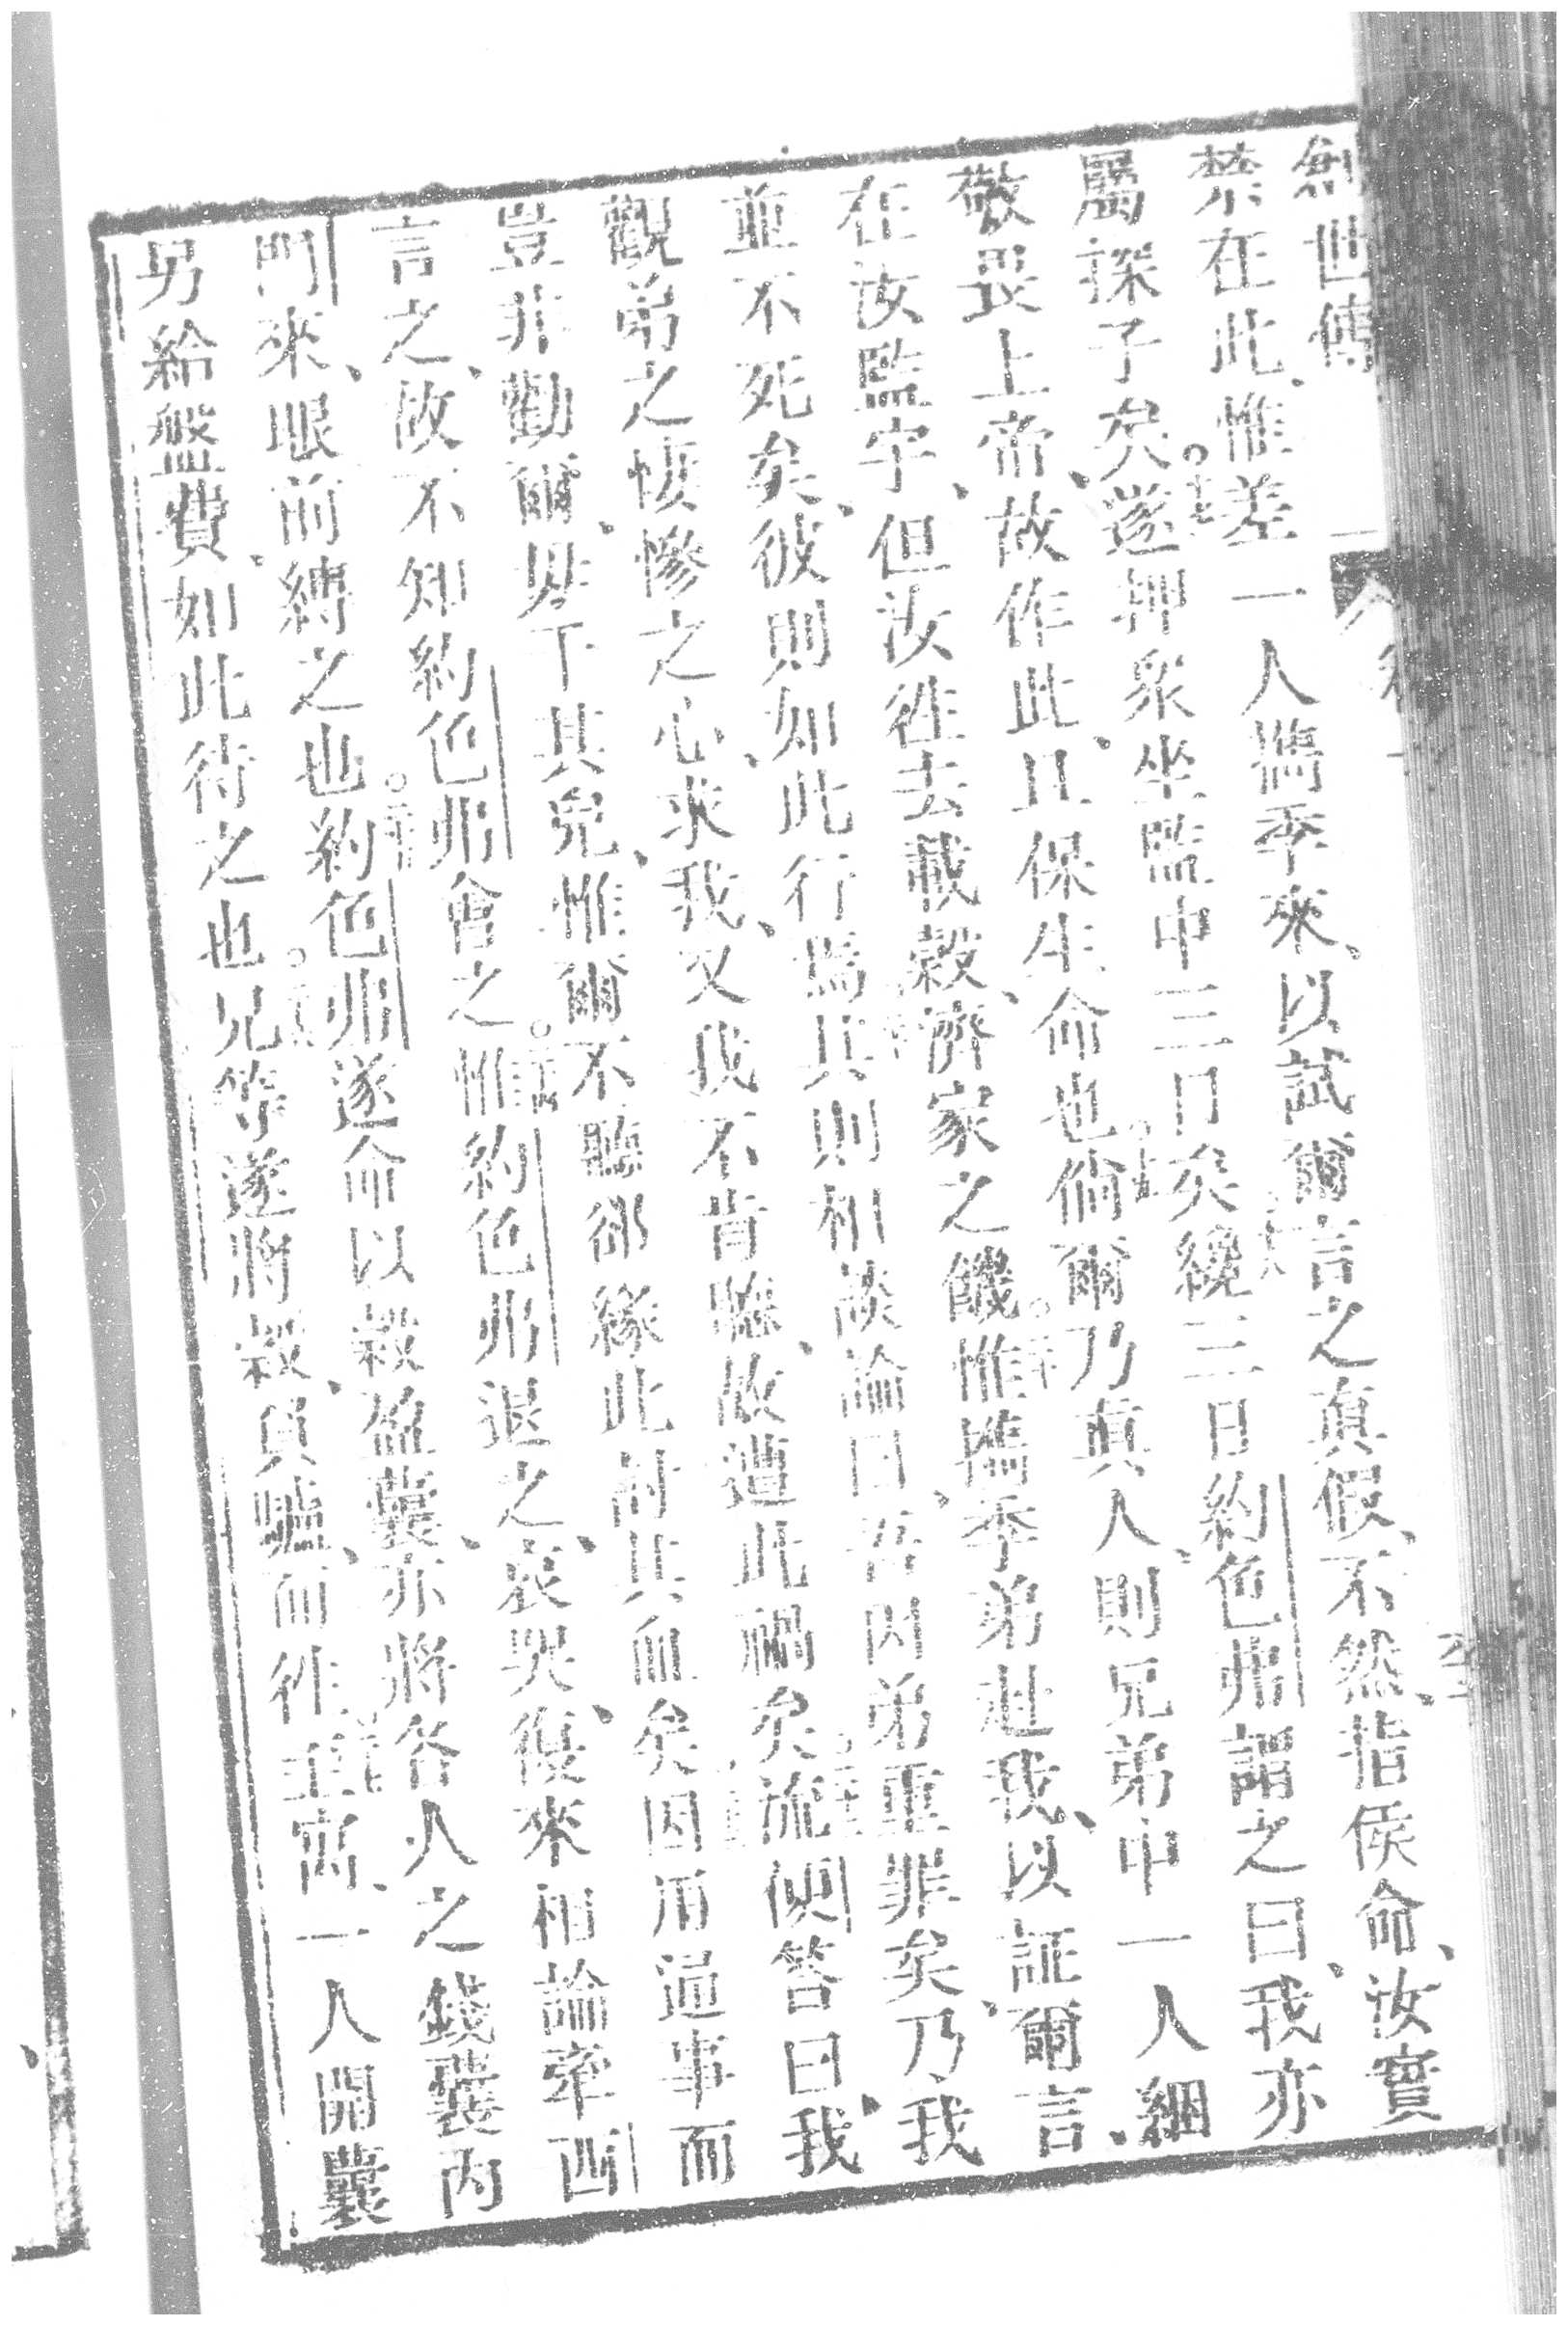 創世傳
禁在此、惟差一人攜季來、以試爾言之真假、不然指侯命、汝實
屬探子矣。遂押眾坐監中三日矣纔三日約色弗謂之曰、我亦
敬畏上帝、故作此、且保生命也。倘爾乃真人、則兄弟中一人綑
在汝監牢、但汝往去載穀、濟家之饑。惟攜季弟赴我、以証爾言、
並不死矣、彼則如此行焉其則相談論曰、吾因弟重罪矣、乃我
觀弟之悽慘之心、求我、又我不肯聽、故遭此禍矣。流便答曰、我
豈非勸爾、毋干其兒、惟爾不聽、卻緣此討其血矣因用通事而
言之、故不知約色弗會之。惟約色弗退之、哀哭、復來相論牽西
門來、眼前縛之也。約色弗遂命以穀盈囊、亦將各人之錢裝內
另給盤費、如此待之也。兄等遂將穀、負驢、而往至寓、一人開囊